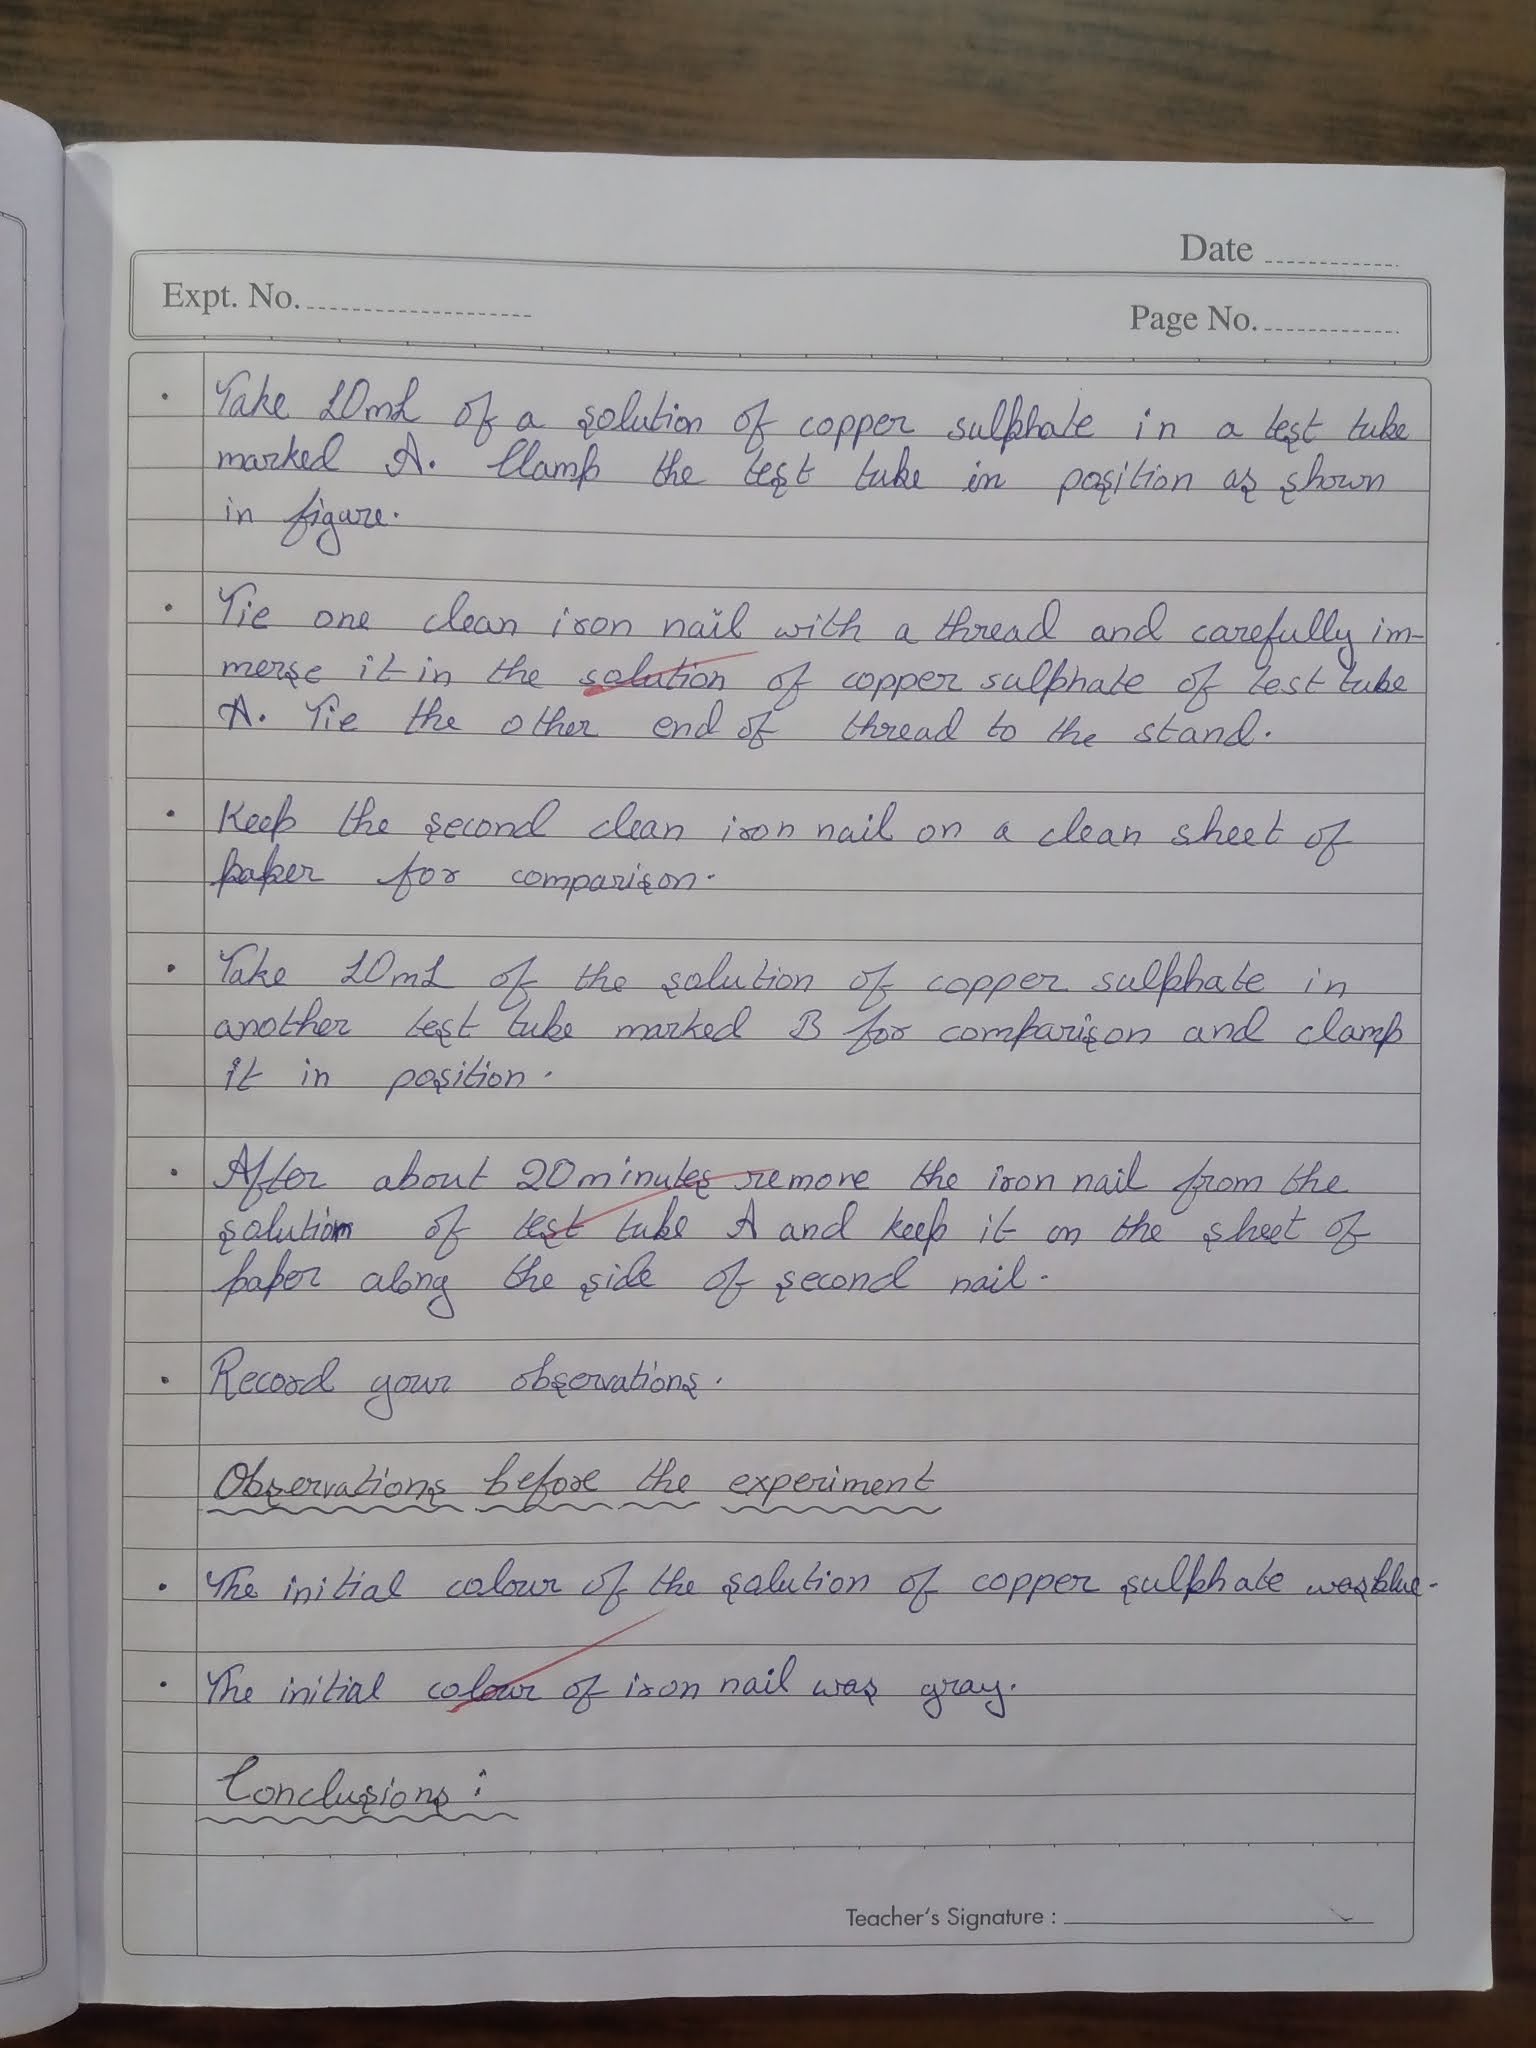 Date
Expt. No.
Page No.
Take 10mL of a solution of copper sulphate in a test tube
marked A. Clamp the test tube in position as shown
in figure.
Tie one clean iron nail with a thread and carefully im-
merse it in the solution of copper sulphate of test tube
A. Tie the other end of thread to the stand.
Keep the second clean iron nail on a clean sheet of
paper for comparison.
Take 10mL of the solution of copper sulphate in
another test tube marked B for comparison and clamp
it in position.
After about 20 minutes remove the iron nail from the
solution of test tube A and keep it on the sheet of
paper along the side of second nail.
Record your observations.
Observations before the experiment
The initial colour of the solution of copper sulphate was blue.
The initial colour of iron nail was gray.
Conclusions :
Teacher's Signature :